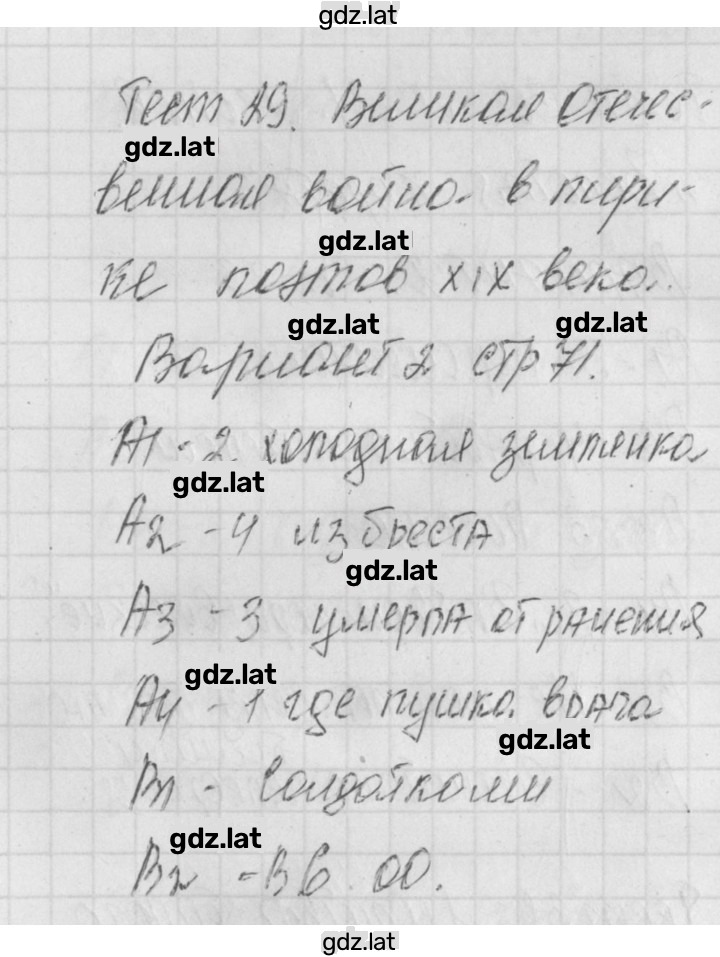 gdz.lat
Тест 29. Великая Отечес-
gdz.lat
венная война в лири-
gdz.lat
ке поэтов XIX века.
gdz.lat
gdz.lat
Вариант 2 стр 71.
А1 - 2. холодная землянка
gdz.lat
А2 - 4 из бреста
gdz.lat
А3 - 3 умерла от ранения
gdz.lat
А4 - 1 где пушка врага
gdz.lat
В1 - Солдатками
gdz.lat
В2 - В 6 00.
gdz.lat